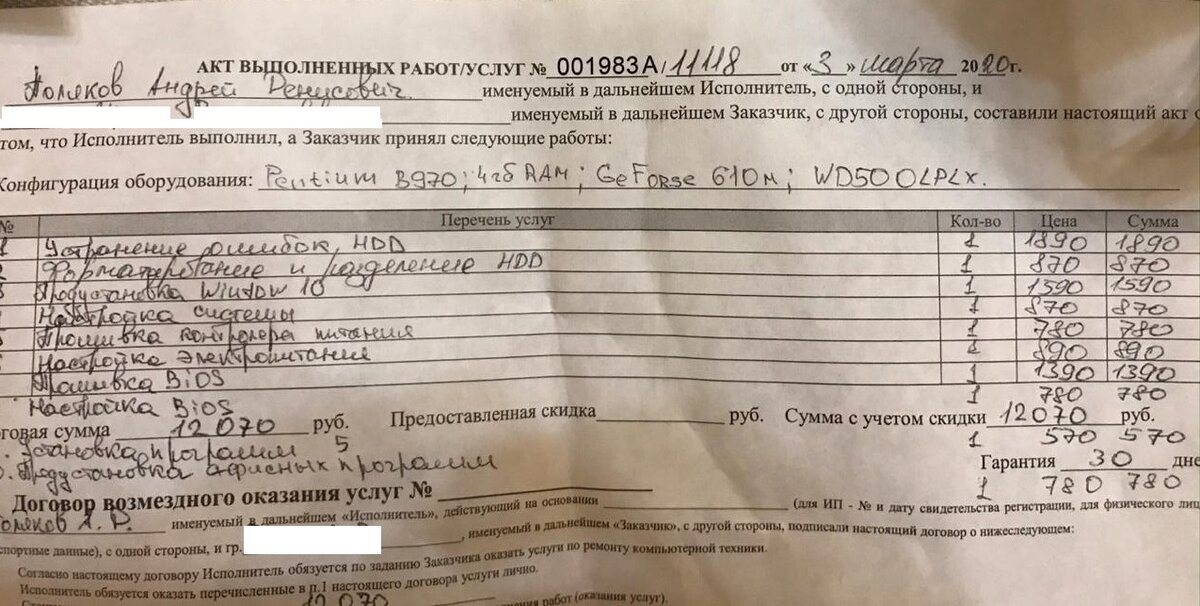 АКТ ВЫПОЛНЕННЫХ РАБОТ/УСЛУГ № 001983А/11118 от «3» марта 2020г.
Поляков Андрей Ренусович именуемый в дальнейшем Исполнитель, с одной стороны, и
именуемый в дальнейшем Заказчик, с другой стороны, составили настоящий акт о
том, что Исполнитель выполнил, а Заказчик принял следующие работы:
Конфигурация оборудования: Pentium B970; 4гб RAM; GeForse 610м; WD500LPLX.
№ Перечень услуг Кол-во Цена Сумма
1 Устранение ошибок HDD 1 1890 1890
Форматирование и разделение HDD 1 870 870
Предустановка Window 10 1 1590 1590
Настройка системы 1 870 870
Прошивка контролера питания 1 780 780
Настройка электропитания 1 890 890
Прошивка BiOS 1 1390 1390
Настройка BiOS 1 780 780
говая сумма 12070 руб. Предоставленная скидка руб. Сумма с учетом скидки 12070 руб.
. Установка программ 5 1 570 570
Гарантия 30 дне
. Предустановка офисных программ 1 780 780
Договор возмездного оказания услуг №
оляков А. Р. именуемый в дальнейшем «Исполнитель», действующий на основании (для ИП - № и дату свидетельства регистрации, для физического лица
спортные данные), с одной стороны, и гр. , именуемый в дальнейшем «Заказчик», с другой стороны, подписали настоящий договор о нижеследующем:
Согласно настоящему договору Исполнитель обязуется по заданию Заказчика оказать услуги по ремонту компьютерной техники.
Исполнитель обязуется оказать перечисленные в п.1 настоящего договора услуги лично.
12070 работ (оказания услуг).